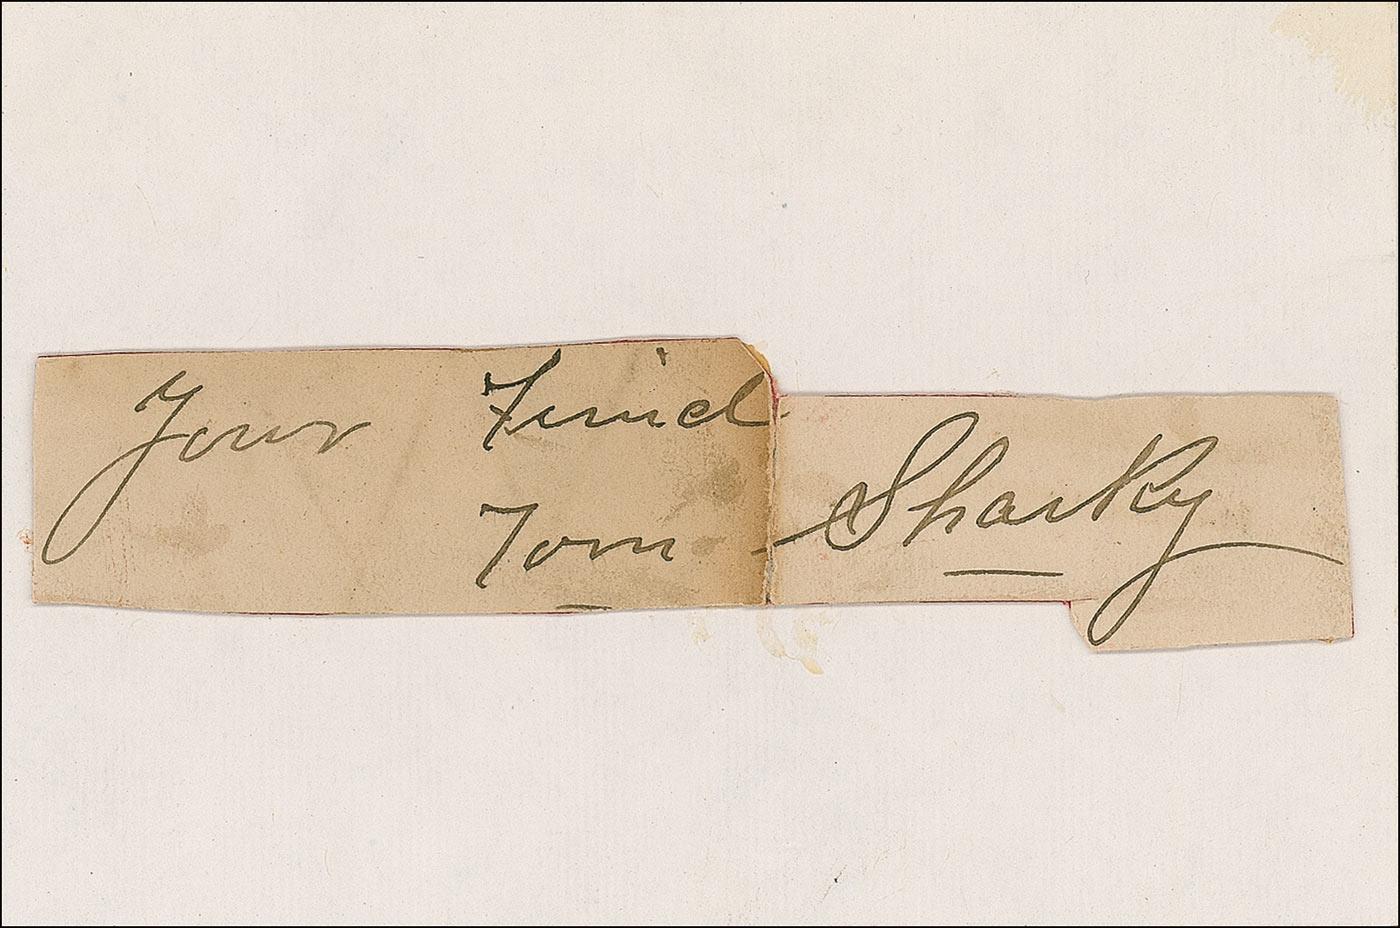 Your Frind
Tom Sharky